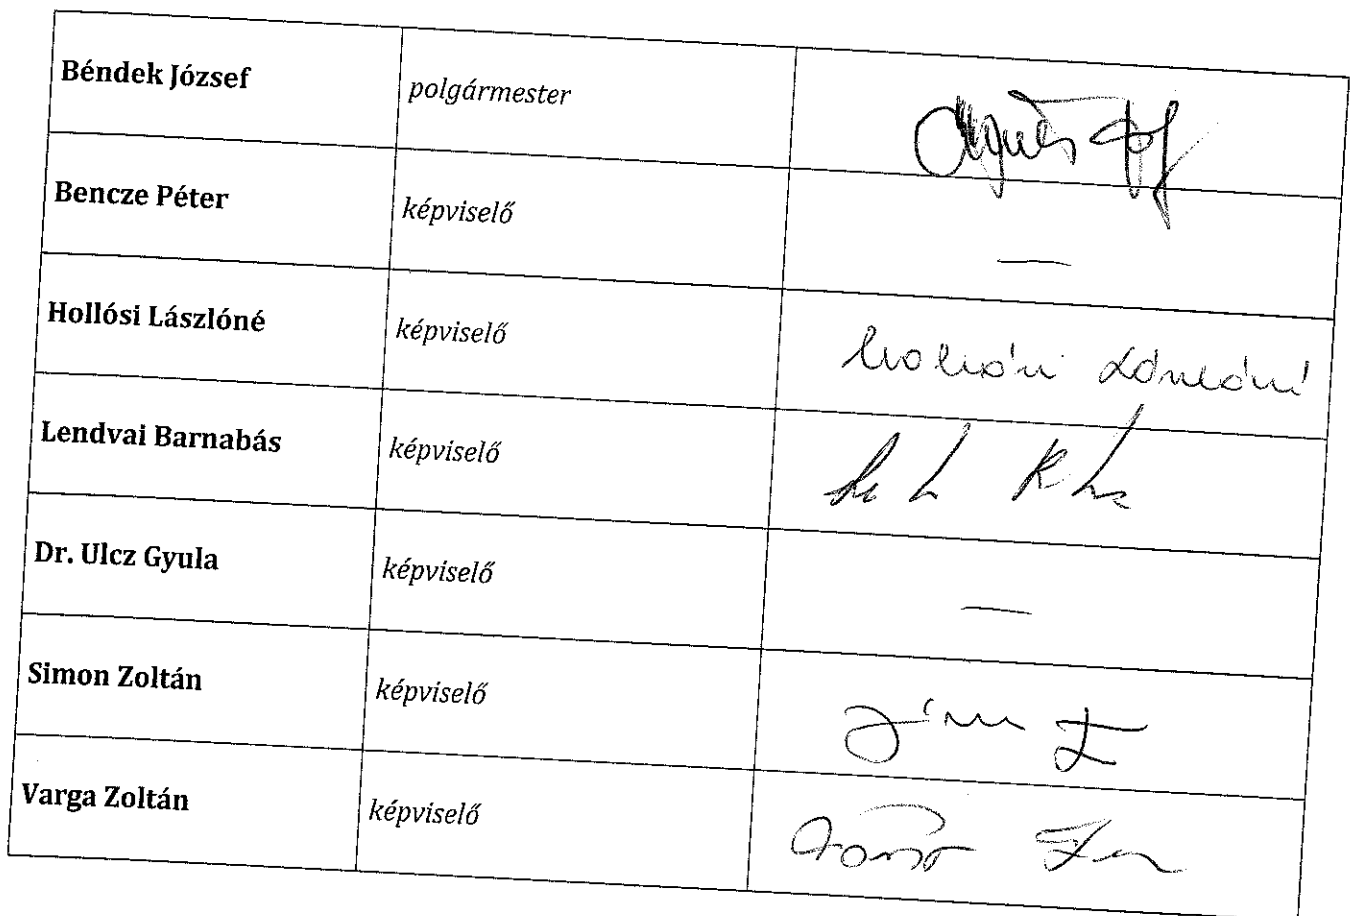 Béndek József polgármester
Bencze Péter képviselő
—
Hollósi Lászlóné képviselő
Lendvai Barnabás képviselő
Dr. Ulcz Gyula képviselő
—
Simon Zoltán képviselő
Varga Zoltán képviselő